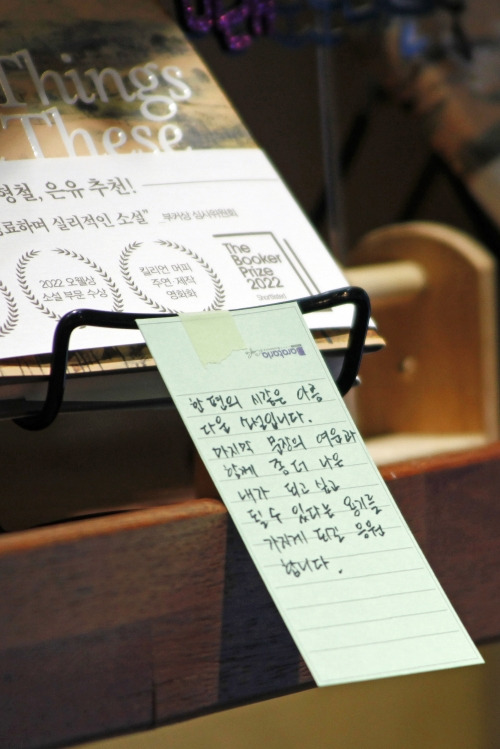 Things
These
형철, 은유 추천!
료하며 실리적인 소설" _부커상 심사위원회
2022 오웰상
소설 부문 수상
킬리언 머피
주연·제작
영화화
The
Booker
Prize
2022
Shortlisted
gratoria
한 편의 시같은 아름
다운 소설입니다.
마지막 문장의 여운과
함께 좀 더 나은
내가 되고 싶고
될 수 있다는 용기를
가지게 되길 응원
합니다.